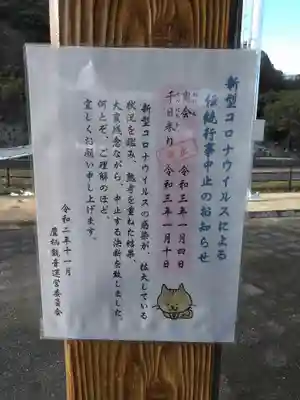 新型コロナウイルスによる
伝統行事中止のお知らせ
会 令和三年一月四日
千日参り 令和三年一月十日
新型コロナウイルスの感染が、拡大している
状況を鑑み、熟考を重ねた結果、
大変残念ながら、中止する決断を致しました。
何とぞ、ご理解のほど、
宜しくお願い申し上げます。
令和二年十一月
鷹栖観音運営委員会